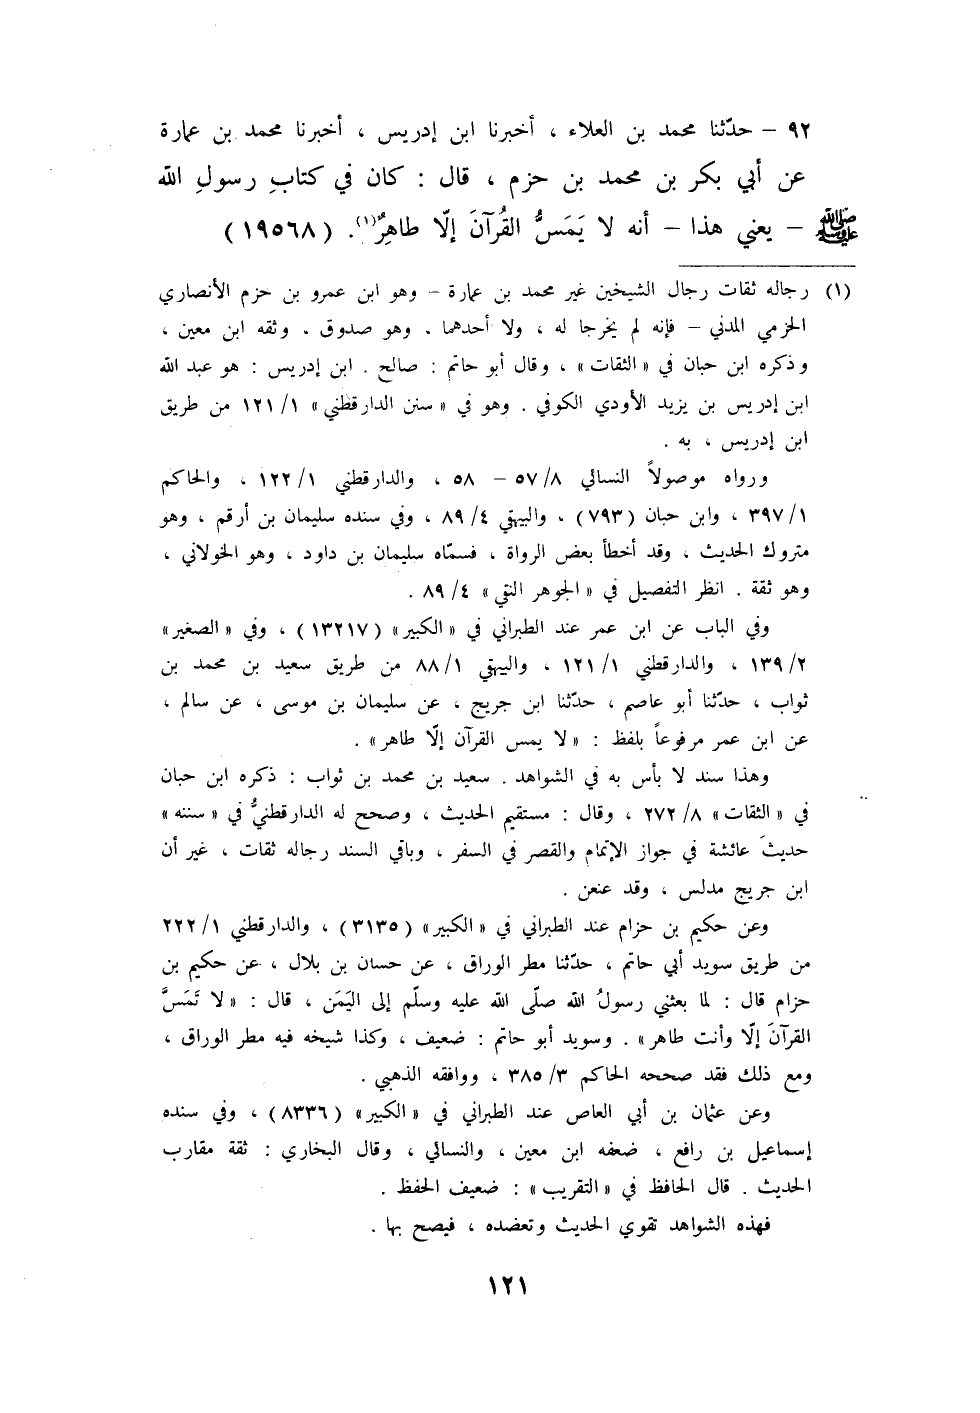 ٩٢ – حدّثنا محمد بن العلاء ، أخبرنا ابن إدريس ، أخبرنا محمد بن عمارة
عن أبي بكر بن محمد بن حزم ، قال : كان في كتابِ رسولِ الله
ﷺ – يعني هذا – أنه لا يَمَسُّ القُرآنَ إلّا طاهِرٌ(١). ( ١٩٥٦٨ )
(١) رجاله ثقات رجال الشيخين غير محمد بن عمارة – وهو ابن عمرو بن حزم الأنصاري
الحزمي المدني – فإنه لم يخرجا له ، ولا أحدهما . وهو صدوق . وثقه ابن معين ،
وذكره ابن حبان في « الثقات » ، وقال أبو حاتم : صالح . ابن إدريس : هو عبد الله
ابن إدريس بن يزيد الأودي الكوفي . وهو في « سنن الدارقطني » ١٢١/١ من طريق
ابن إدريس ، به .
ورواه موصولاً النسائي ٥٧/٨ – ٥٨ ، والدارقطني ١٢٢/١ ، والحاكم
٣٩٧/١ ، وابن حبان ( ٧٩٣ ) ، والبيهقي ٨٩/٤ ، وفي سنده سليمان بن أرقم ، وهو
متروك الحديث ، وقد أخطأ بعض الرواة ، فسمّاه سليمان بن داود ، وهو الخولاني ،
وهو ثقة . انظر التفصيل في « الجوهر النقي » ٨٩/٤ .
وفي الباب عن ابن عمر عند الطبراني في « الكبير » ( ١٣٢١٧ ) ، وفي « الصغير »
١٣٩/٢ ، والدارقطني ١٢١/١ ، والبيهقي ٨٨/١ من طريق سعيد بن محمد بن
ثواب ، حدّثنا أبو عاصم ، حدّثنا ابن جريج ، عن سليمان بن موسى ، عن سالم ،
عن ابن عمر مرفوعاً بلفظ : « لا يمس القرآن إلّا طاهر » .
وهذا سند لا بأس به في الشواهد . سعيد بن محمد بن ثواب : ذكره ابن حبان
في « الثقات » ٢٧٢/٨ ، وقال : مستقيم الحديث ، وصحح له الدارقطنيُّ في « سننه »
حديثَ عائشة في جواز الإتمام والقصر في السفر ، وباقي السند رجاله ثقات ، غير أن
ابن جريج مدلس ، وقد عنعن .
وعن حكيم بن حزام عند الطبراني في « الكبير » ( ٣١٣٥ ) ، والدارقطني ٢٢٢/١
من طريق سويد أبي حاتم ، حدّثنا مطر الوراق ، عن حسان بن بلال ، عن حكيم بن
حزام قال : لما بعثني رسولُ الله صلّى الله عليه وسلّم إلى اليَمَن ، قال : « لا تَمَسَّ
القرآنَ إلّا وأنت طاهر » . وسويد أبو حاتم : ضعيف ، وكذا شيخه فيه مطر الوراق ،
ومع ذلك فقد صححه الحاكم ٣٨٥/٣ ، ووافقه الذهبي .
وعن عثمان بن أبي العاص عند الطبراني في « الكبير » ( ٨٣٣٦ ) ، وفي سنده
إسماعيل بن رافع ، ضعفه ابن معين ، والنسائي ، وقال البخاري : ثقة مقارب
الحديث . قال الحافظ في « التقريب » : ضعيف الحفظ .
فهذه الشواهد تقوي الحديث وتعضده ، فيصح بها .
١٢١